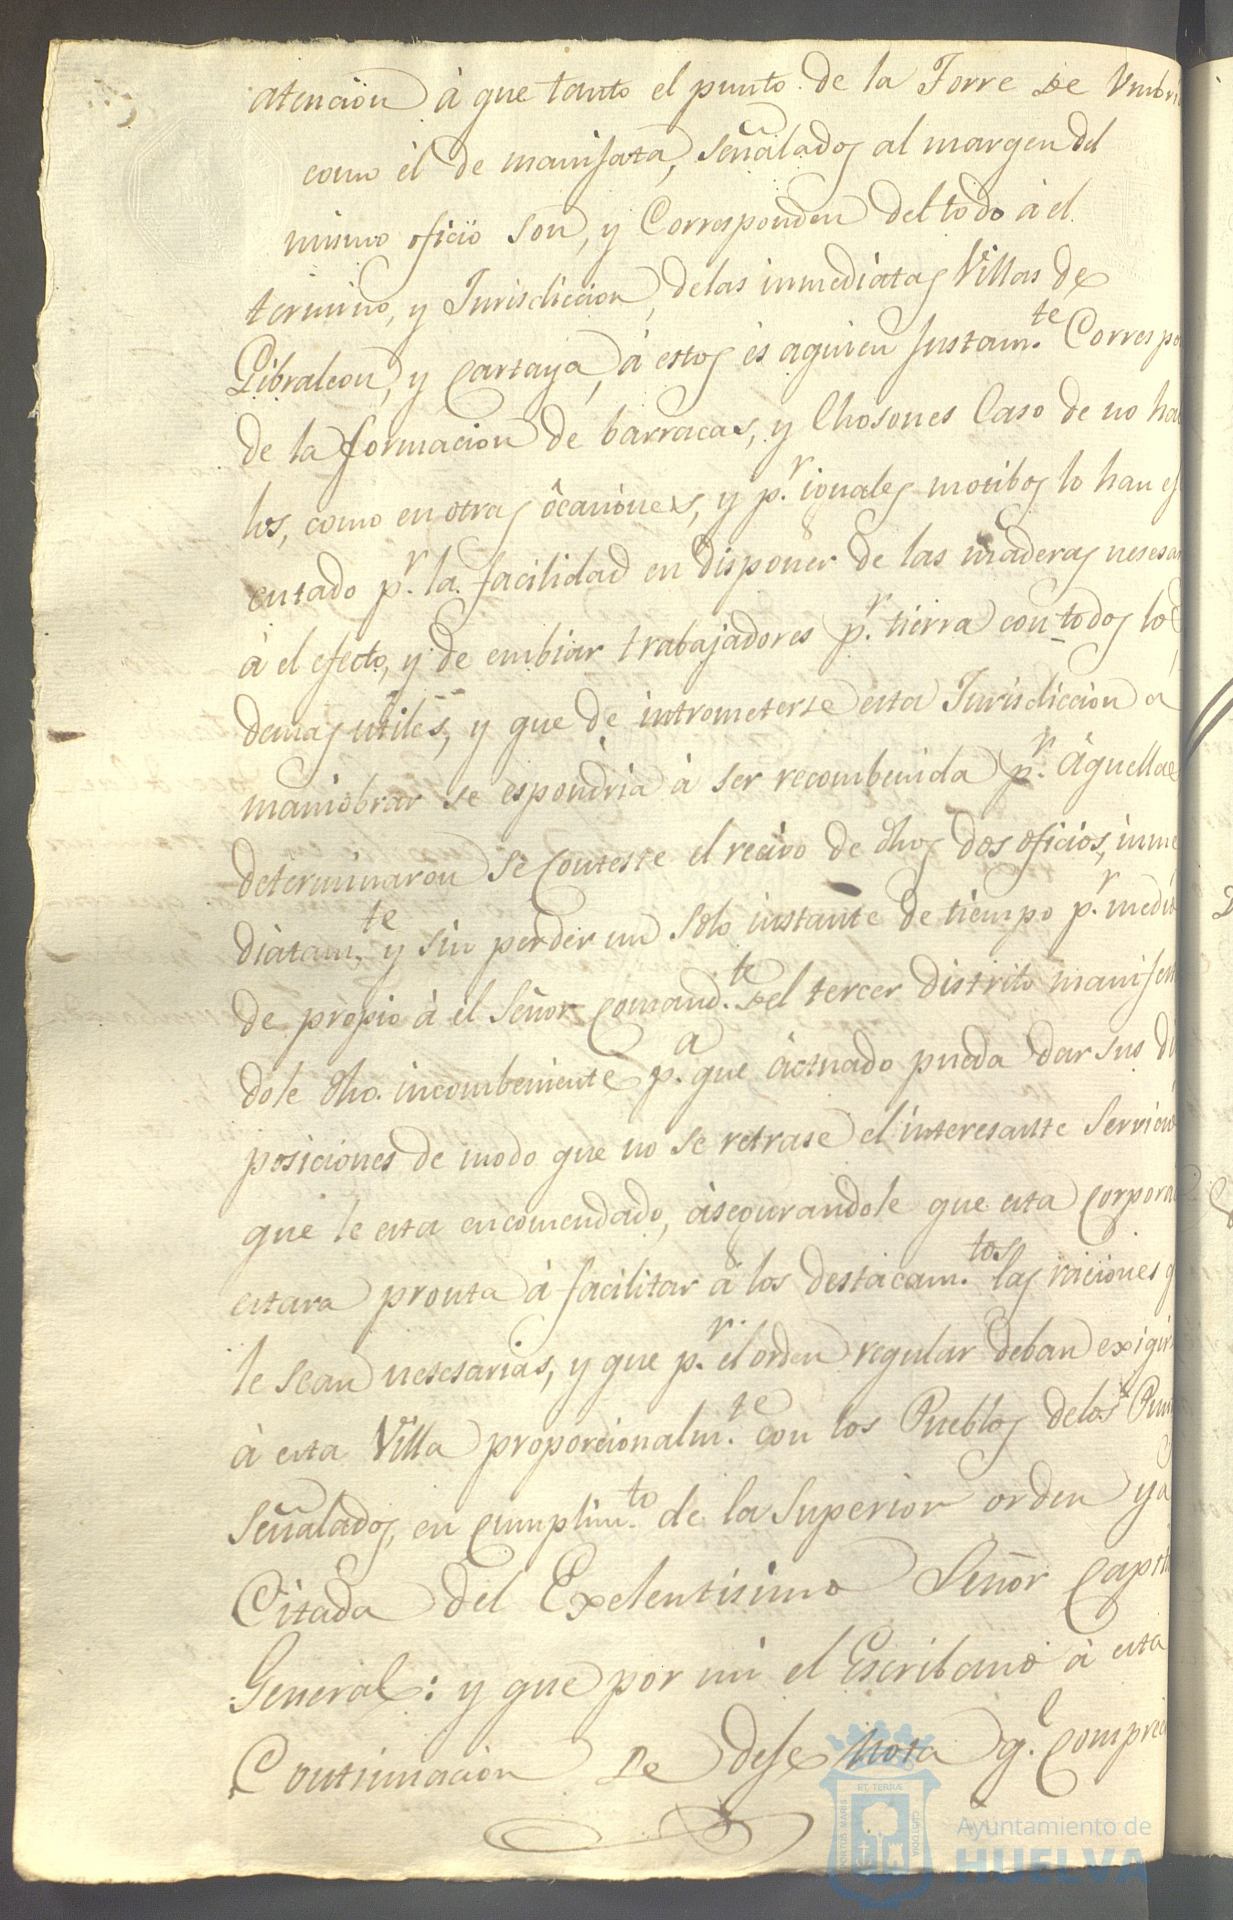 atencion à que tanto el punto de la Torre de Vmbri
como èl de manifata, señalados al margen del
mismo oficio son, y Corresponden del todo à el
termino, y Jurisdiccion, delas inmediatas Villas de
Gibraleon, y Cartaya, à estos es aquien Justam.te Correspo
de la formacion de barracas, y Chosones Caso de no ha
los, como en otras òcaciones, y p.r iguales motibos lo han ese
cutado p.r la facilidad en disponer de las maderas nesesar
à el efecto, y de embiar trabajadores p.r tierra con todos lo
demas utiles, y que de intrometerse esta Jurisdiccion a
maniobrar se espondria à ser recombenida p.r àquellas
determinaron se conteste el recivo de dhos dos oficios, inme
diatam.te y sin perder un solo instante de tiempo p.r medio
de pròpio à el Señor Comand.te del tercer distrito manifestan
dole dho. incombeniente p.a que àctuado pueda dar sus di
posiciones de modo que no se retrase el interesante servicio
que le esta encomendado, àsegurandole que esta corpora
estara pronta à facilitar à los destacam.tos las raciones q
le sean nesesarias, y que p.r el orden regular deban exigir
à esta Villa proporcionalm.te con los Pueblos delos Pun
señalados, en cumplim.to de la Superior orden ya
Citada del Exelentisimo Señor Capit
General: y que por mi el Escribano à esta
Continuacion se dese Nota q.e compre
Ayuntamiento de
HUELVA